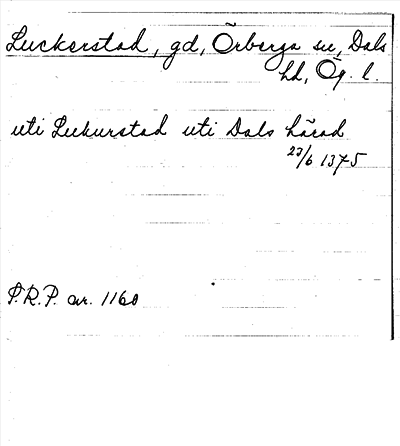 Luckerstad, gd, Örberga sn, Dals
hd, Ög. l.
uti Lukurstad uti Dals härad
23/6 1375
P.R.P. nr. 1160